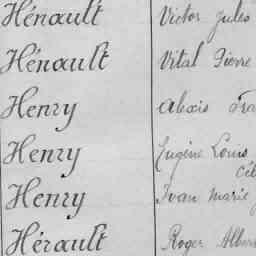 Hénault Victor Jules
Hénault Vital Pierre
Henry Alexis
Henry Eugène Louis
Henry Ivan Marie
Hérault Roger